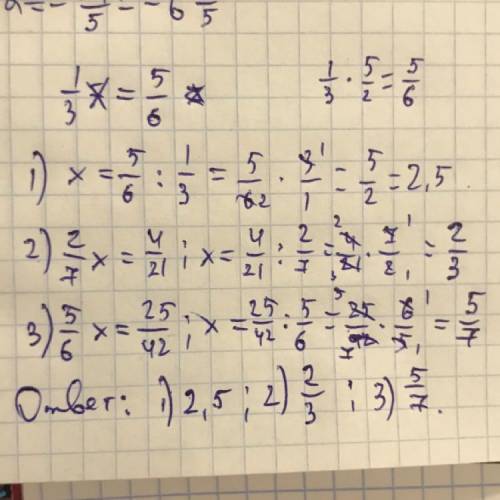 = - 1/5 = - 6 1/5
1/3 x = 5/6 x
1/3 · 5/2 = 5/6
1) x = 5/6 : 1/3 = 5/62 · 3 1/1 = 5/2 = 2,5.
2) 2/7 x = 4/21 ; x = 4/21 : 2/7 = 2 4/21 · 7 1/2 1 = 2/3
3) 5/6 x = 25/42 ; x = 25/42 : 5/6 = 5 25/7 42 · 6 1/5 1 = 5/7
Ответ: 1) 2,5 ; 2) 2/3 ; 3) 5/7.